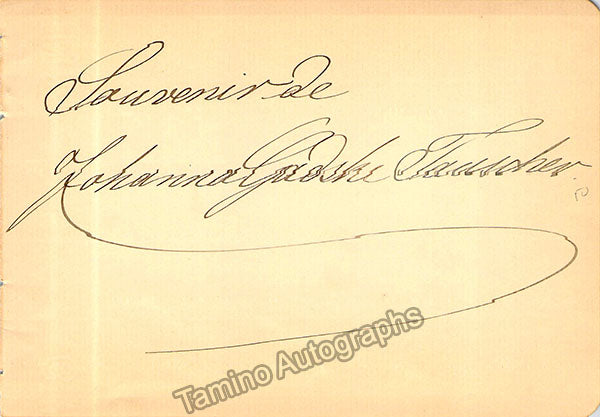 Souvenir de
Johanna Gadski Tauscher.
Tamino Autographs